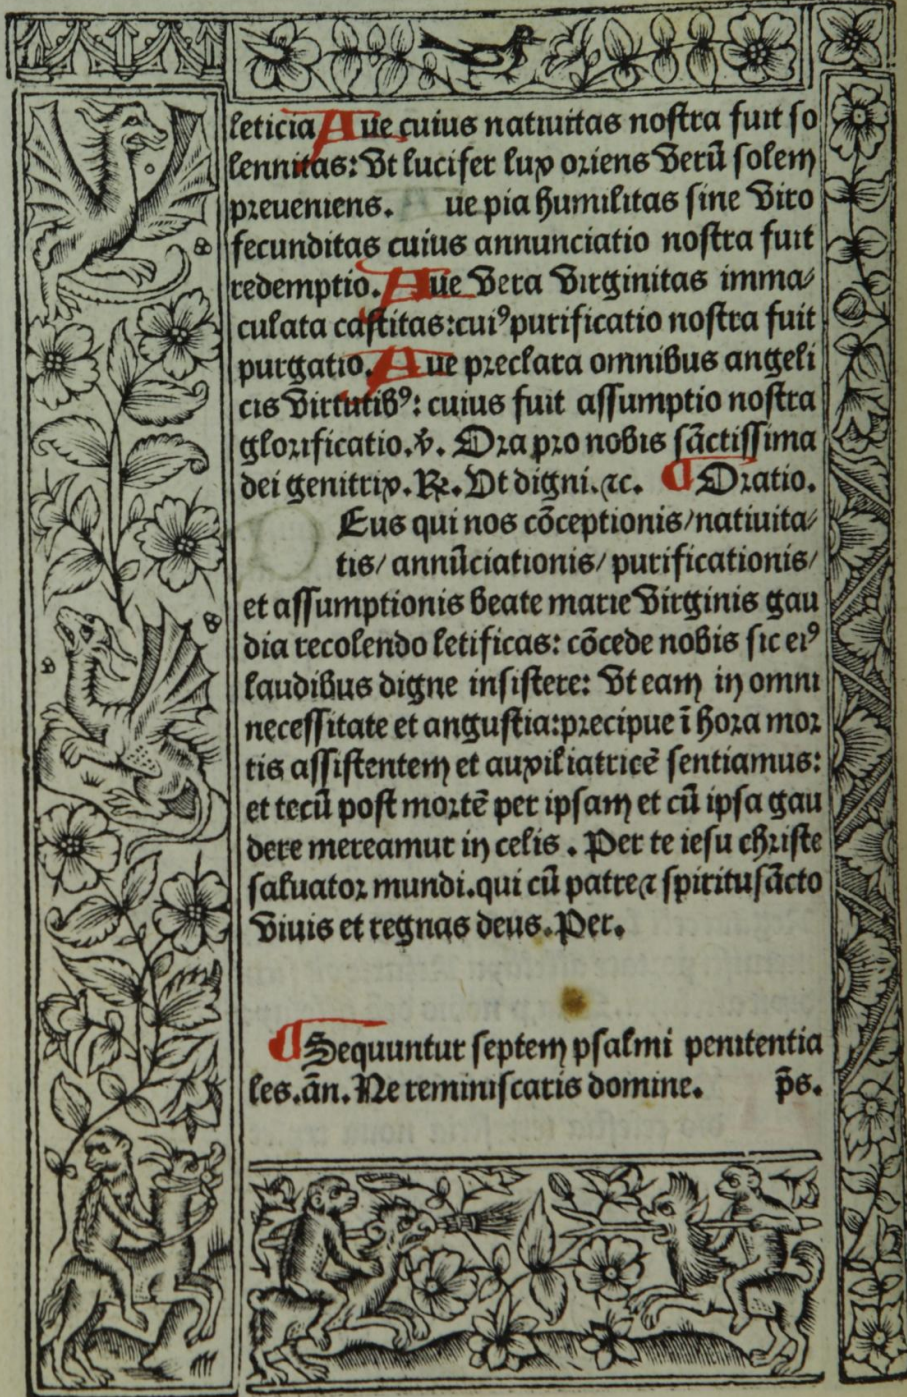 leticia Aue cuius natiuitas nostra fuit so
lennitas: Vt lucifer lux oriens Verū solem
preueniens. ue pia humilitas sine Viro
fecunditas cuius annunciatio nostra fuit
redemptio. Aue Vera Virginitas imma⸗
culata castitas: cuiꝰ purificatio nostra fuit
purgatio. Aue preclara omnibus angeli
cis Virtutibꝰ: cuius fuit assumptio nostra
glorificatio. ℣. Ora pro nobis sāctissima
dei genitrix. ℟. Vt digni. ⁊c. ¶ Oratio.
Eus qui nos cōceptionis/ natiuita⸗
tis/ annūciationis/ purificationis/
et assumptionis beate marie Virginis gau
dia recolendo letificas: cōcede nobis sic eiꝰ
laudibus digne insistere: Vt eam in omni
necessitate et angustia: precipue ī hora mor
tis assistentem et auxiliatricē sentiamus:
et tecū post mortē per ipsam et cū ipsa gau
dere mereamur in celis. Per te iesu christe
saluator mundi. qui cū patre ⁊ spiritusācto
Viuis et regnas deus. Per.
¶ Sequuntur septem psalmi penitentia
les. ān. Ne reminiscaris domine. p̄s.